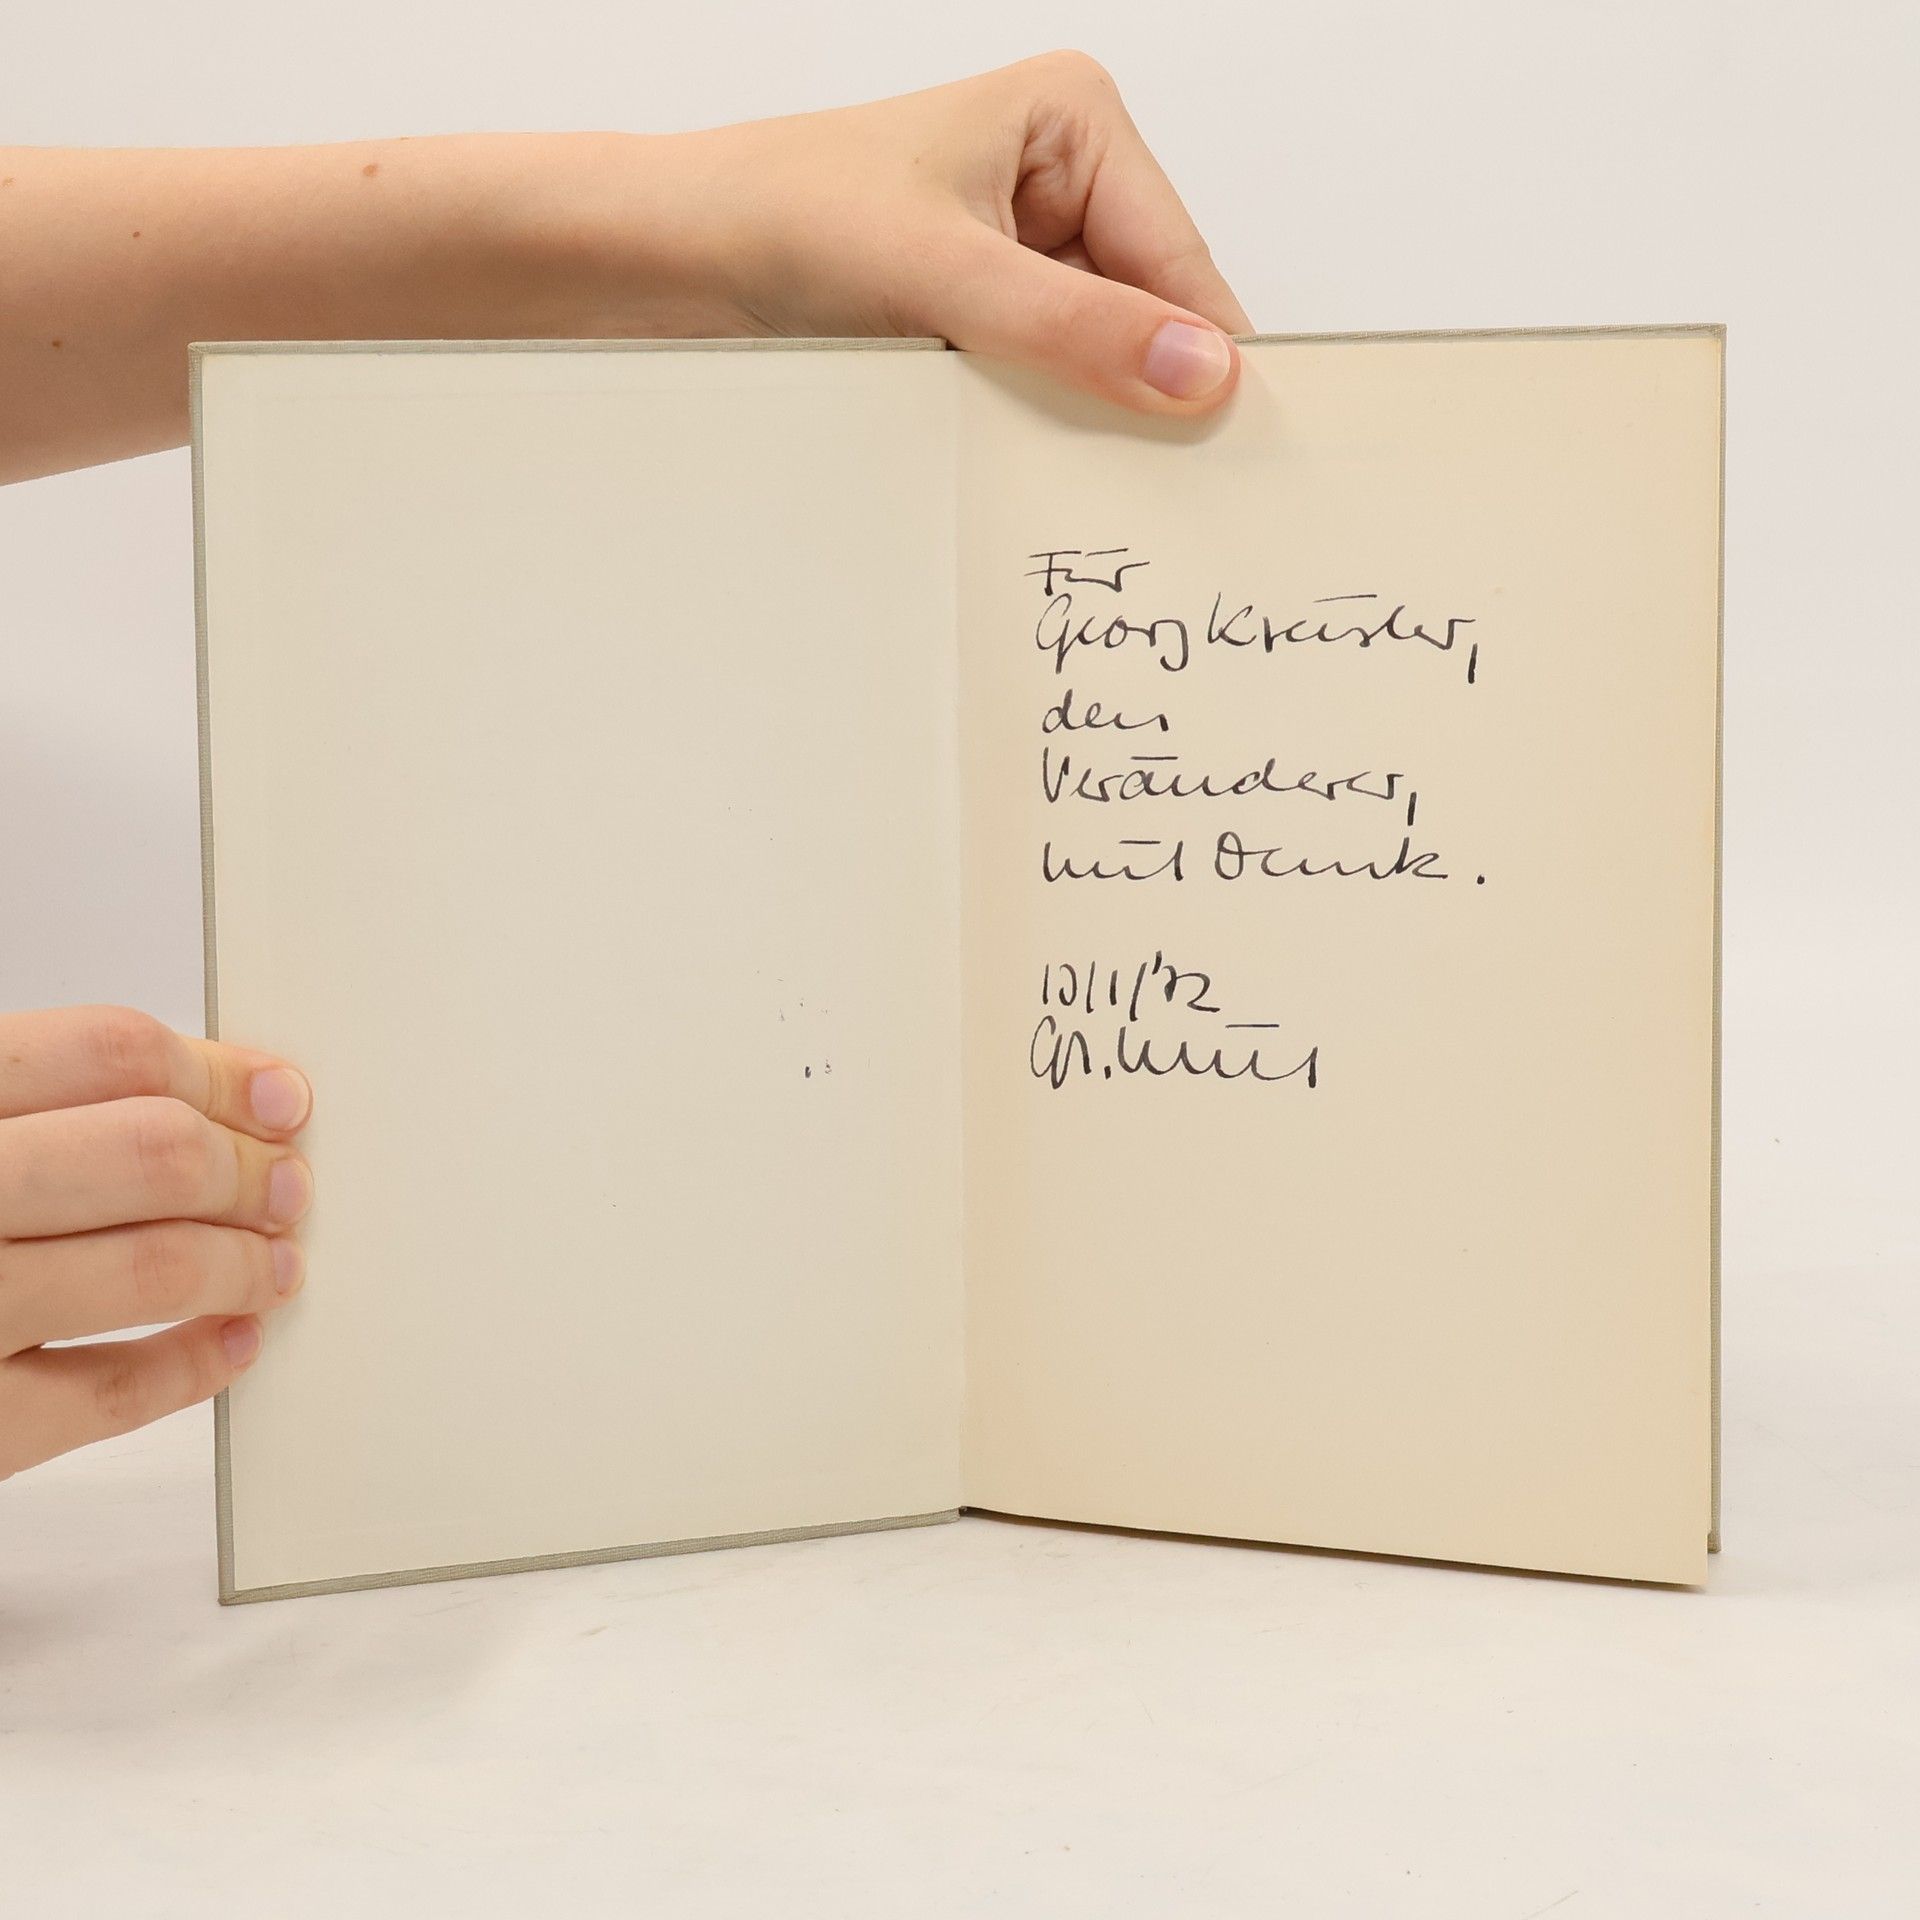 Für
Georg Kreisler,
den
Veränderer,
mit Dank.
10/1/'72